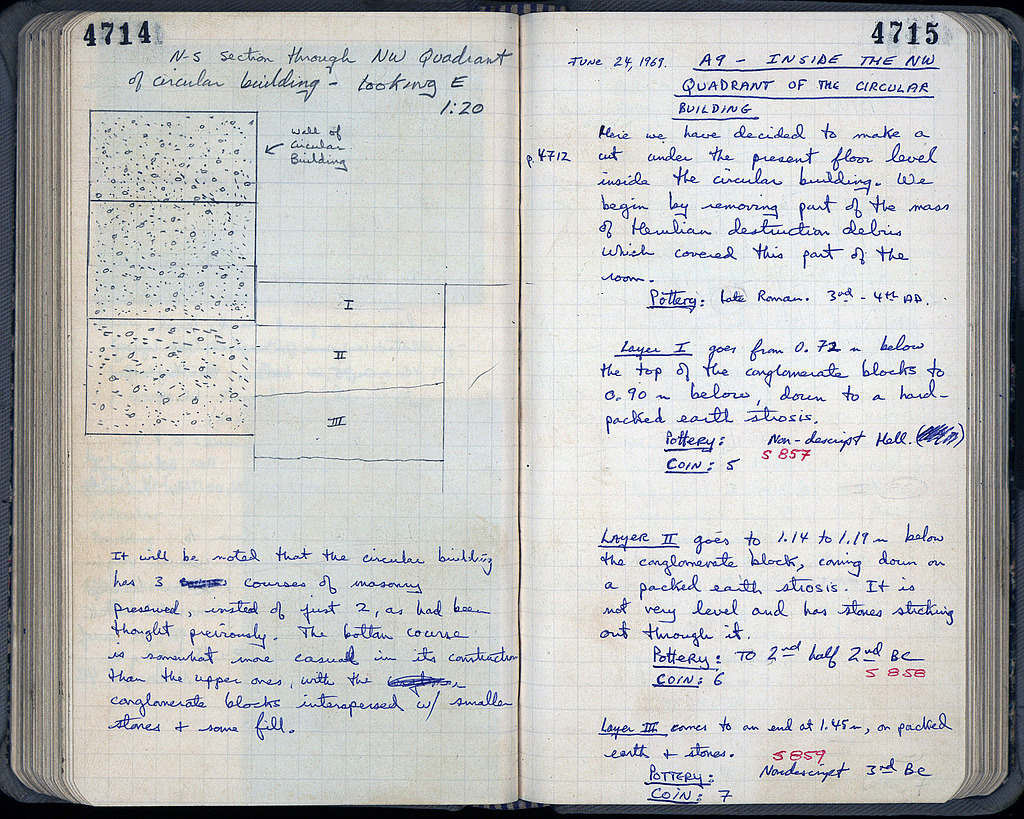 4714
N-S section through NW Quadrant
of circular building - looking E
1:20
Wall of
Circular
Building
I
II
III
It will be noted that the circular building
has 3 courses of masonry
preserved, insted of just 2, as had been
thought previously. The bottom course
is somewhat more casual in its construction
than the upper ones, with the
conglomerate blocks interspersed w/ smaller
stones + some fill.
4715
June 24, 1969. A9 - INSIDE THE NW
QUADRANT OF THE CIRCULAR
BUILDING
Here we have decided to make a
p. 4712 cut under the present floor level
inside the circular building. We
begin by removing part of the mass
of Herulian destruction debris
which covered this part of the
room.
Pottery: Late Roman. 3rd - 4th AD.
Layer I goes from 0.72 m below
the top of the conglomerate blocks to
0.90 m below, down to a hard-
packed earth strosis.
Pottery: Non-descript Hell.
S 857
COIN: 5
LAYER II goes to 1.14 to 1.19 m below
the conglomerate block, coming down on
a packed earth strosis. It is
not very level and has stones sticking
out through it.
Pottery: TO 2nd half 2nd BC
S 858
COIN: 6
Layer III comes to an end at 1.45 m, on packed
earth + stones.
S 859
POTTERY: Nondescript 3rd BC
COIN: 7